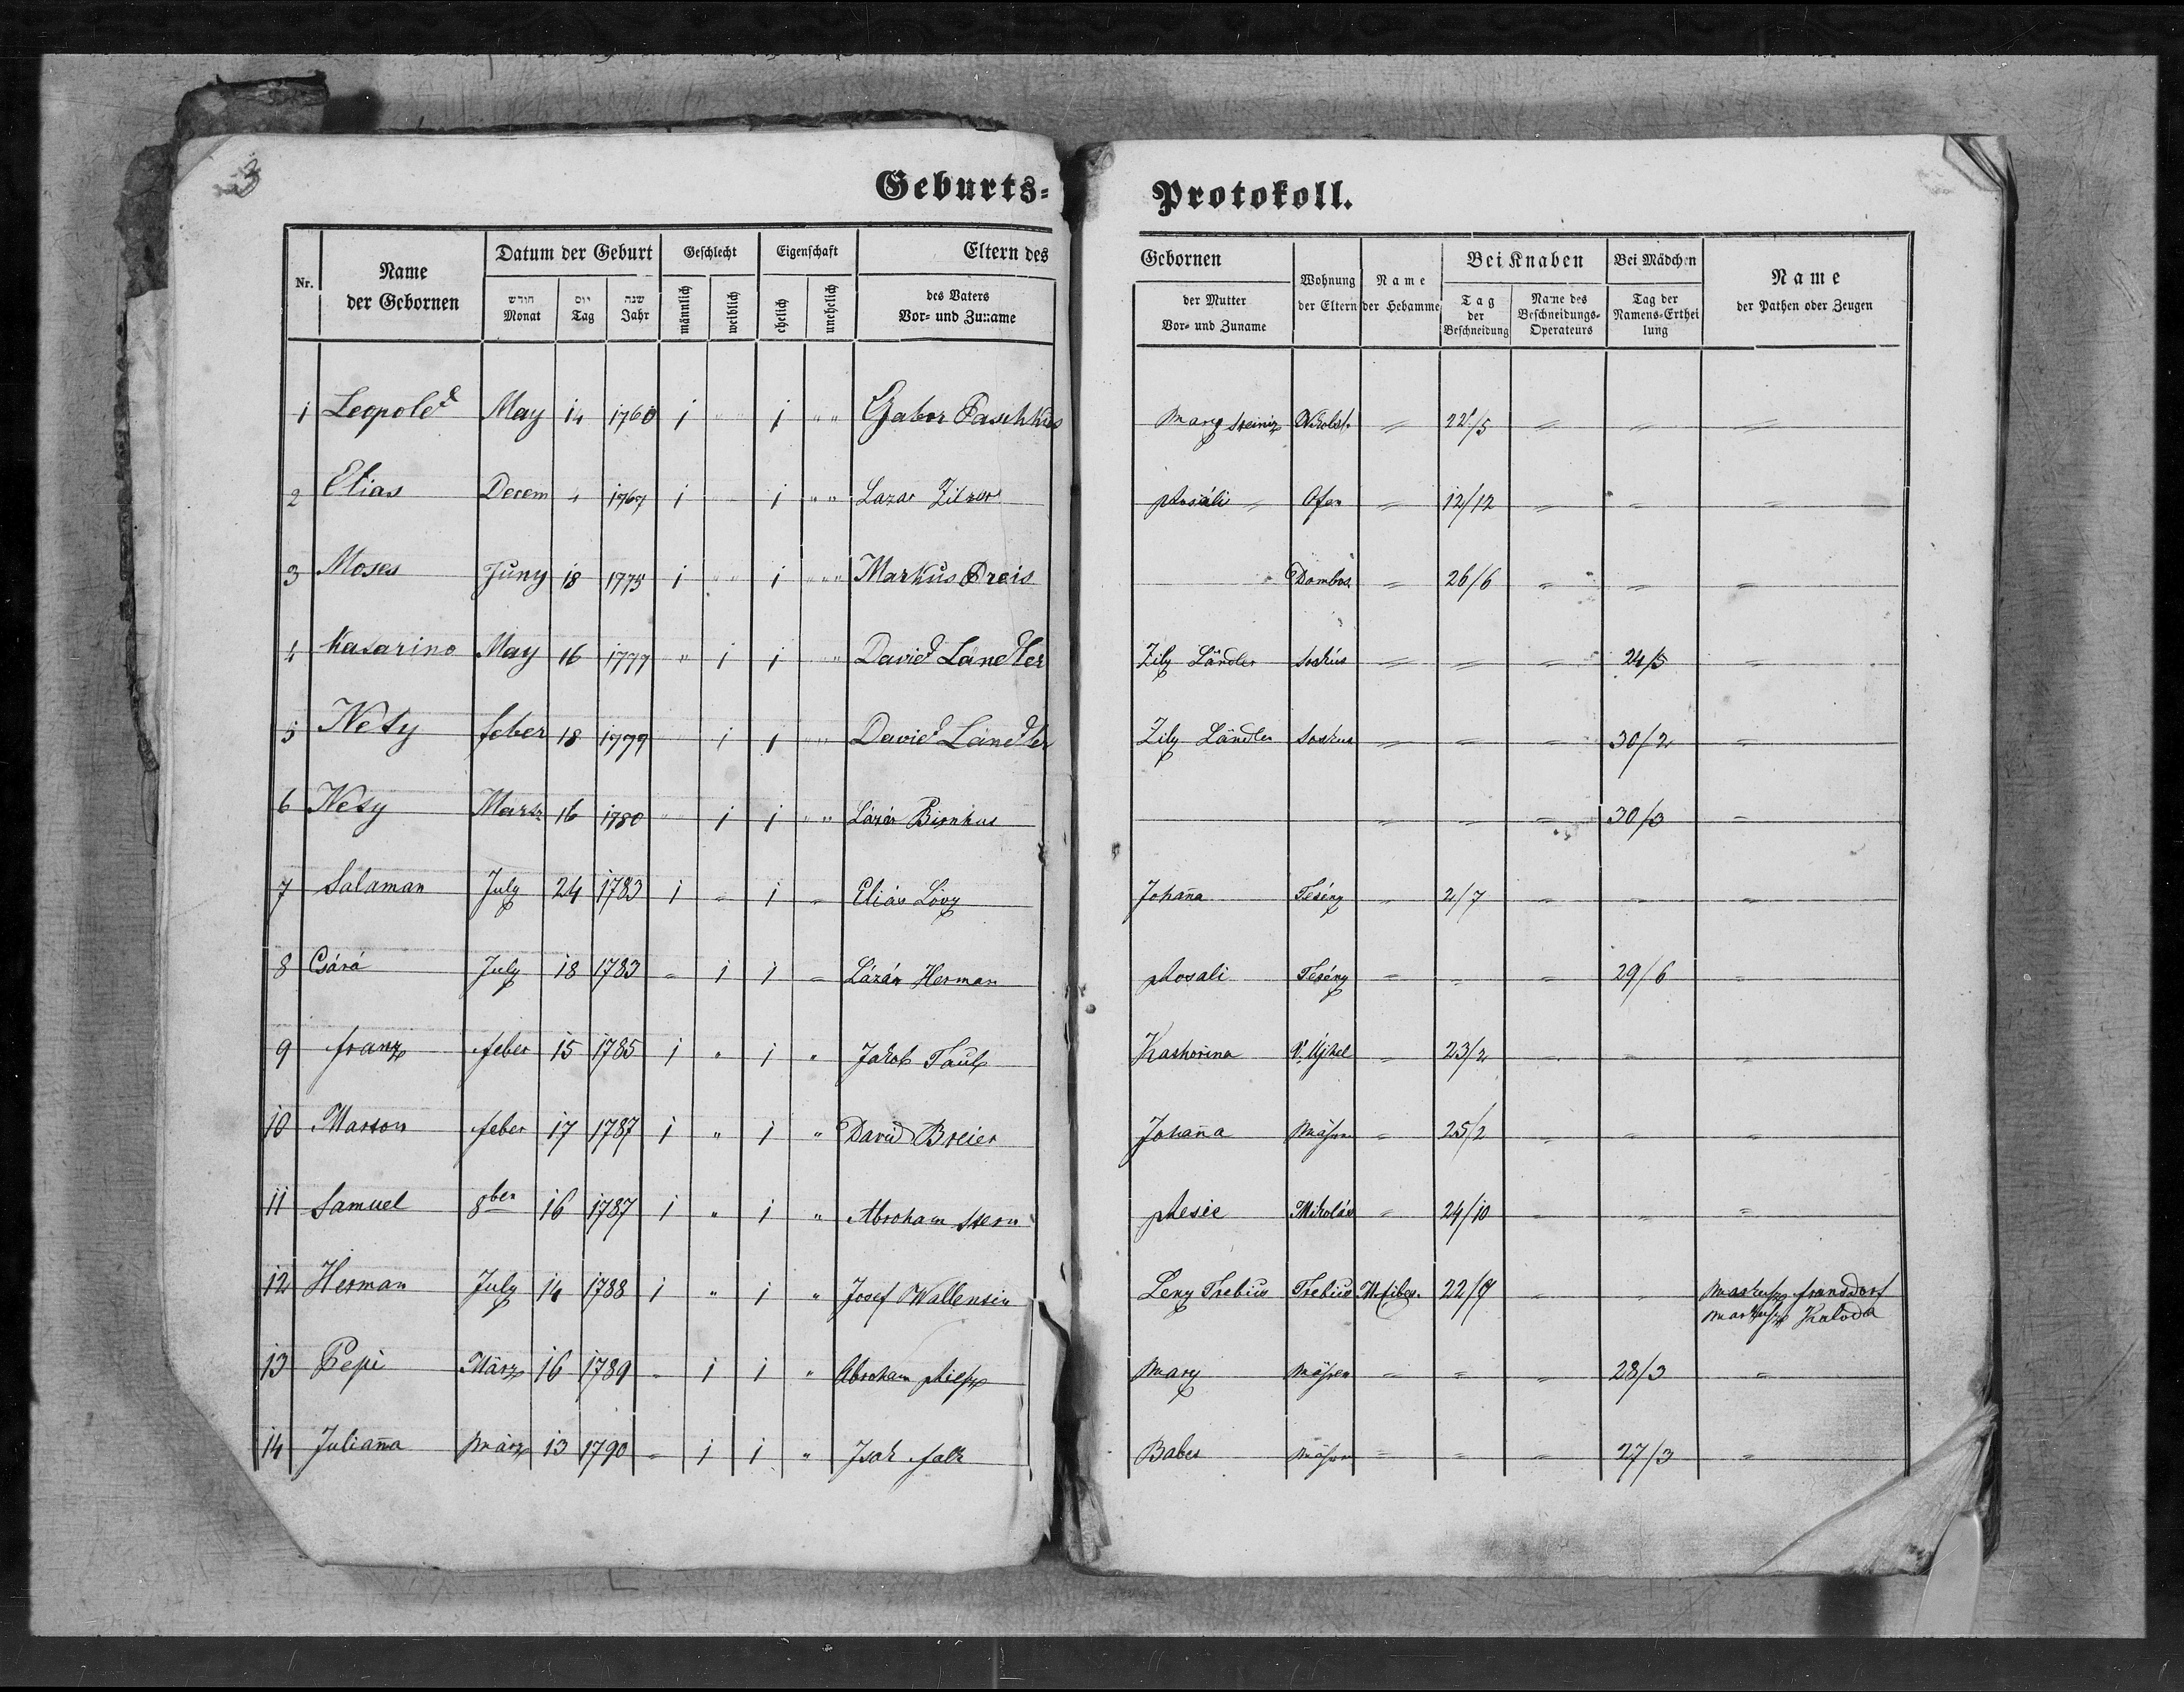 3
Geburts= Protokoll.
Nr. Name der Gebornen Datum der Geburt Geschlecht Eigenschaft Eltern des Gebornen Wohnung der Eltern Name der Hebamme Bei Knaben Bei Mädchen Name der Pathen oder Zeugen
חודש Monat יום Tag שנה Jahr männlich weiblich ehelich unehelich des Vaters Vor= und Zuname der Mutter Vor= und Zuname Tag der Beschneidung Name des Beschneidungs= Operateurs Tag der Namens=Erthei lung
1 Leopold May 14 1760 1 " " 1 " " Gabor Paschkus Mary Steiniz " 22/5 " " "
2 Elias Decem 4 1767 1 1 " " Lazar Zilzer Rosáli " Ofen " 12/12 " " "
3 Moses Juny 18 1775 1 " " 1 " " Markus Preis Dombos " 26/6 " " "
4 Katarina May 16 1777 " 1 1 " David Ländler Zily Ländler " " " 24/5 "
5 Nety feber 18 1779 1 1 " " David Ländler Zily Ländler " " " 30/2 "
6 Nety Martz 16 1780 " 1 1 " " Lázár " " " 30/3 "
7 Salaman July 24 1783 1 " 1 " Eliás Lövy Johanna Tesény " 2/7 " " "
8 Csárá July 18 1783 " 1 1 " Lázár Herman Rosali Tesény " " " 29/6 "
9 franz feber 15 1785 1 " 1 " Jakob Taub Kathorina V. Ujhel " 23/2 " " "
10 Marton feber 17 1787 1 " 1 " David Breier Johanna Mähren " 25/2 " " "
11 Samuel 8ber 16 1787 1 " 1 " Abraham Stern Resie Mikolás " 24/10 " " "
12 Herman July 14 1788 1 " 1 " Josef Leny Trebius Trebius 22/7 " "
13 Pepi März 16 1789 " 1 1 " Abraham Mary Mähren " " " 28/3 "
14 Julianna März 13 1790 " 1 1 " Isak falk Babes Mähren " " " 27/3 "